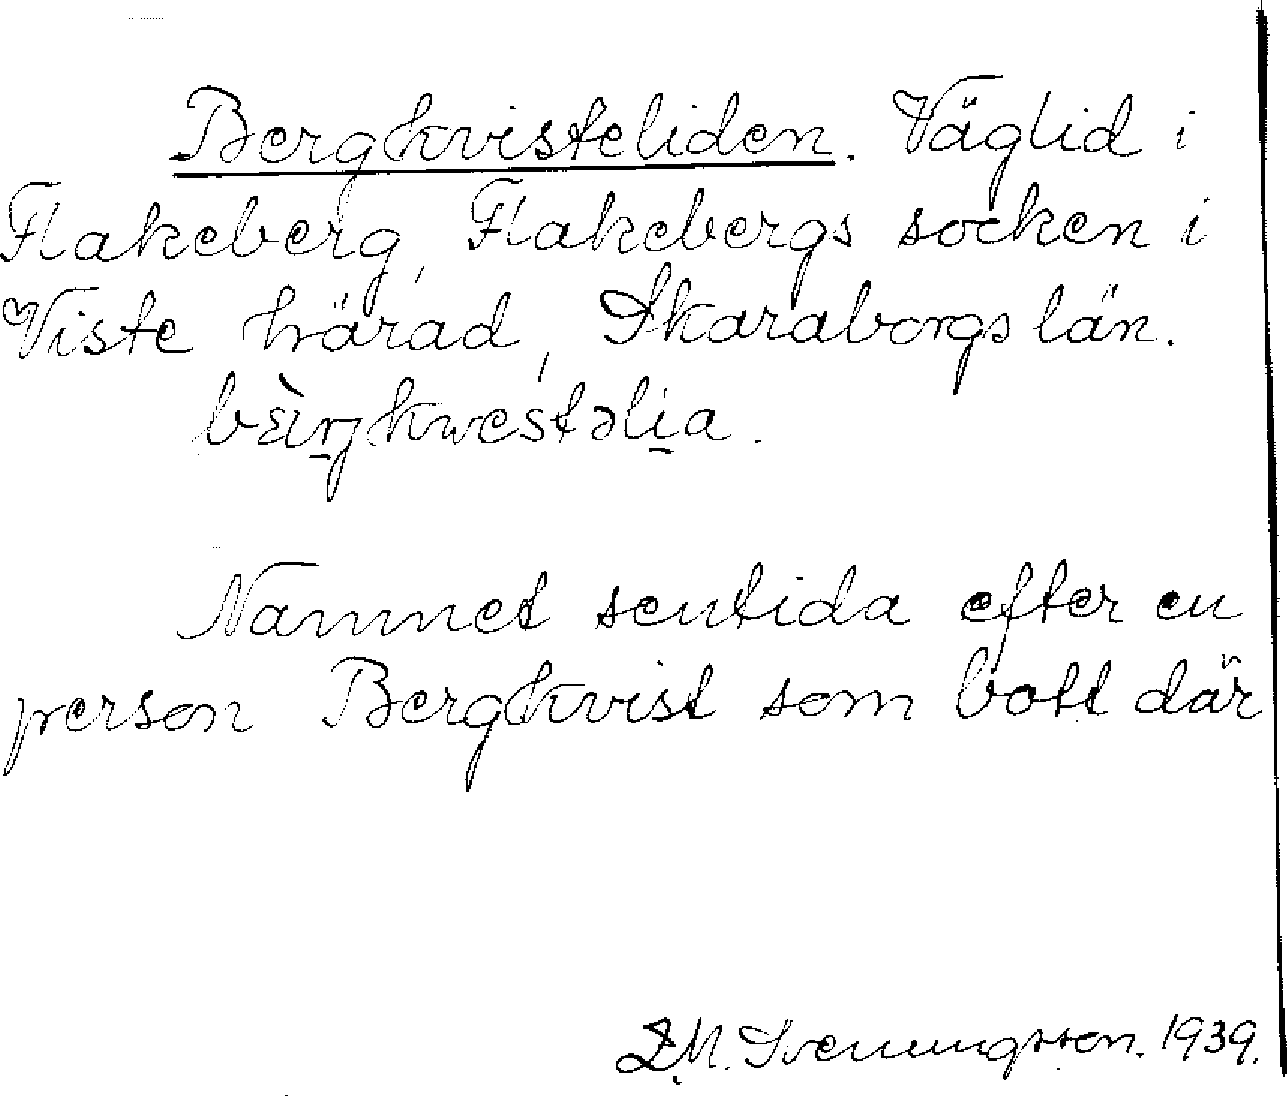 Bergkvisteliden. Väglid i
Flakeberg, Flakebergs socken i
Viste härad, Skaraborgs län.
bæ̀rjkwestəlia.
Namnet sentida efter en
person Bergkvist som bott där
Z.M. Svenungsson. 1939.